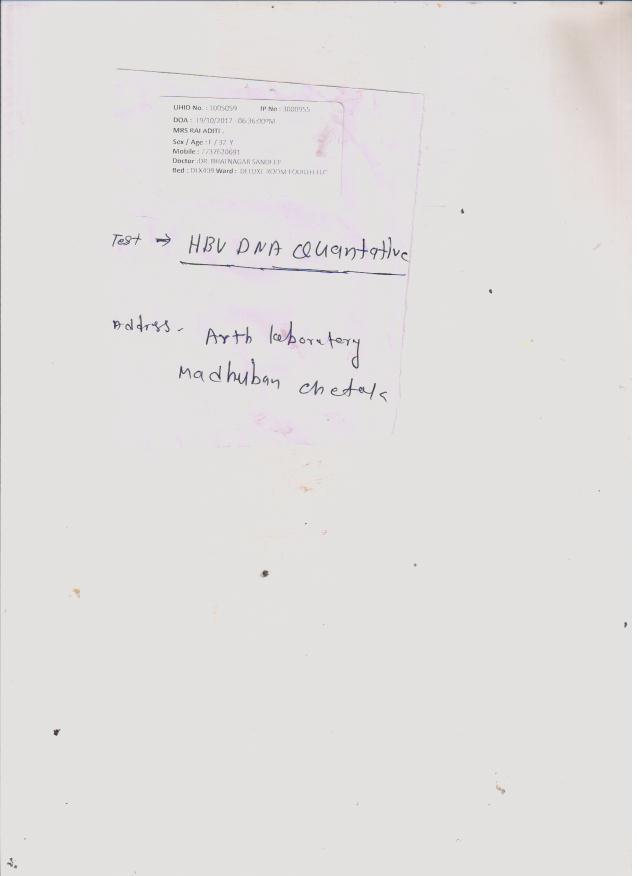 UHID No. : 1005059 IP No : 3000955
DOA : 19/10/2017 - 06:36:00PM
MRS RAI ADITI .
Sex / Age : F / 32 Y
Mobile : 7737620691
Doctor :DR. BHATNAGAR SANDEEP
Bed : DLX409 Ward : DELUXE ROOM FOURTH FLO
Test → HBV DNA Quantative
Address - Arth laboratory
Madhuban chetak
2.